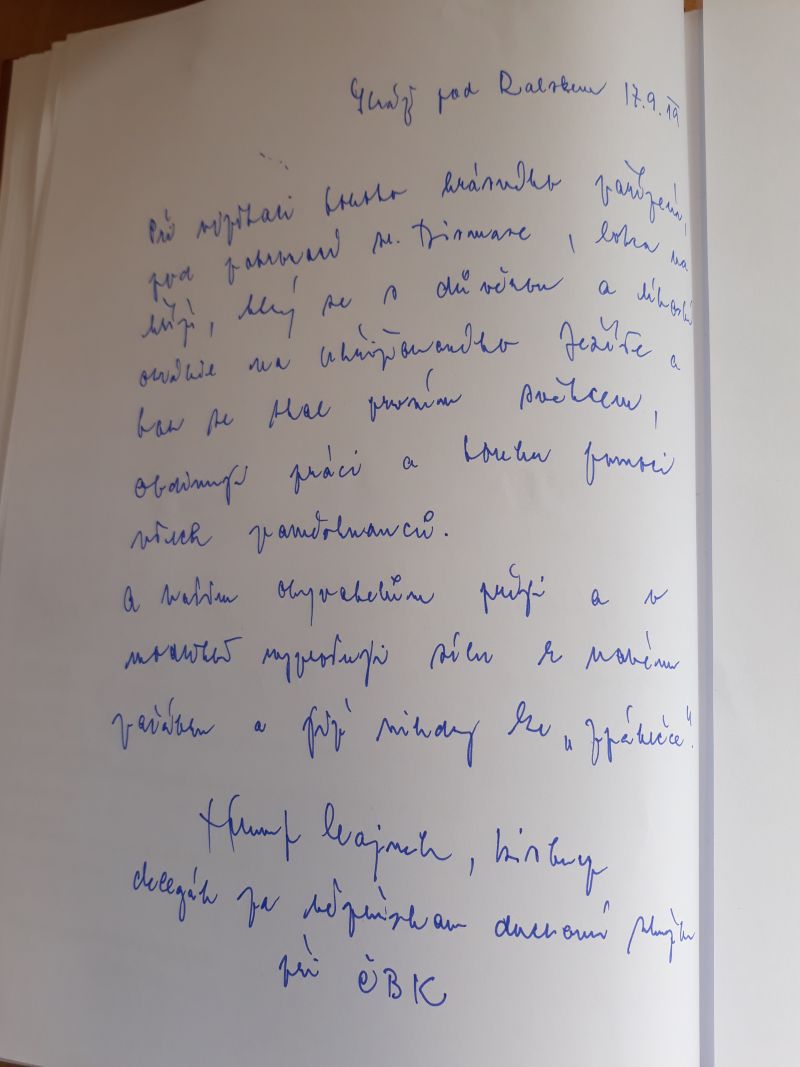 Stráž pod Ralskem 17.9.19
Při návštěvě tohoto krásného zařízení,
pod patronací sv. Dismase, lotra na
kříži, který se s důvěrou a lítostí
obrátil na ukřižovaného Ježíše a
tak se stal prvním světcem,
obdivuji práci a touhu pomoci
všech zaměstnanců.
A vašim obyvatelům přeji a v
modlitbě vyprošuji sílu k novému
začátku a již nikdy ke „zpátečce“.
+ Josef Kajnek, biskup
delegát za vězeňskou duchovní službu
při ČBK